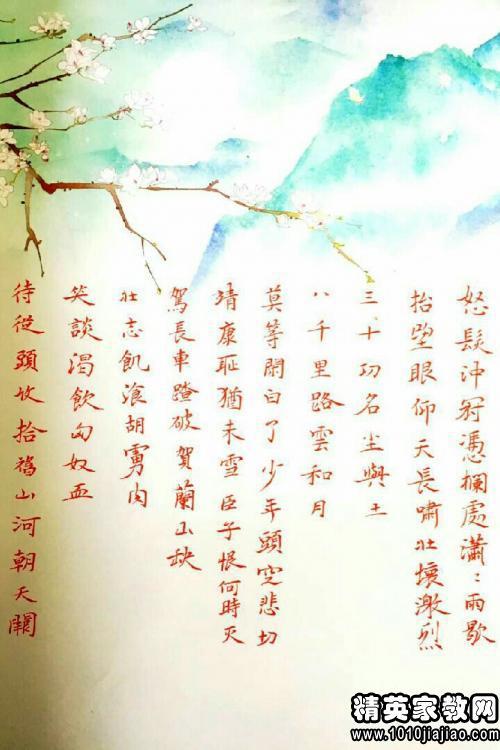 怒髮沖冠憑欄處瀟〻雨歇
抬望眼仰天長嘯壯懷激烈
三十功名尘與土
八千里路雲和月
莫等閑白了少年頭空悲切
靖康恥猶未雪臣子恨何時灭
駕長車踏破賀蘭山缺
壯志飢湌胡虜肉
笑談渴飲匈奴血
待從頭收拾舊山河朝天闕
精英家教网
www.1010jiajiao.com